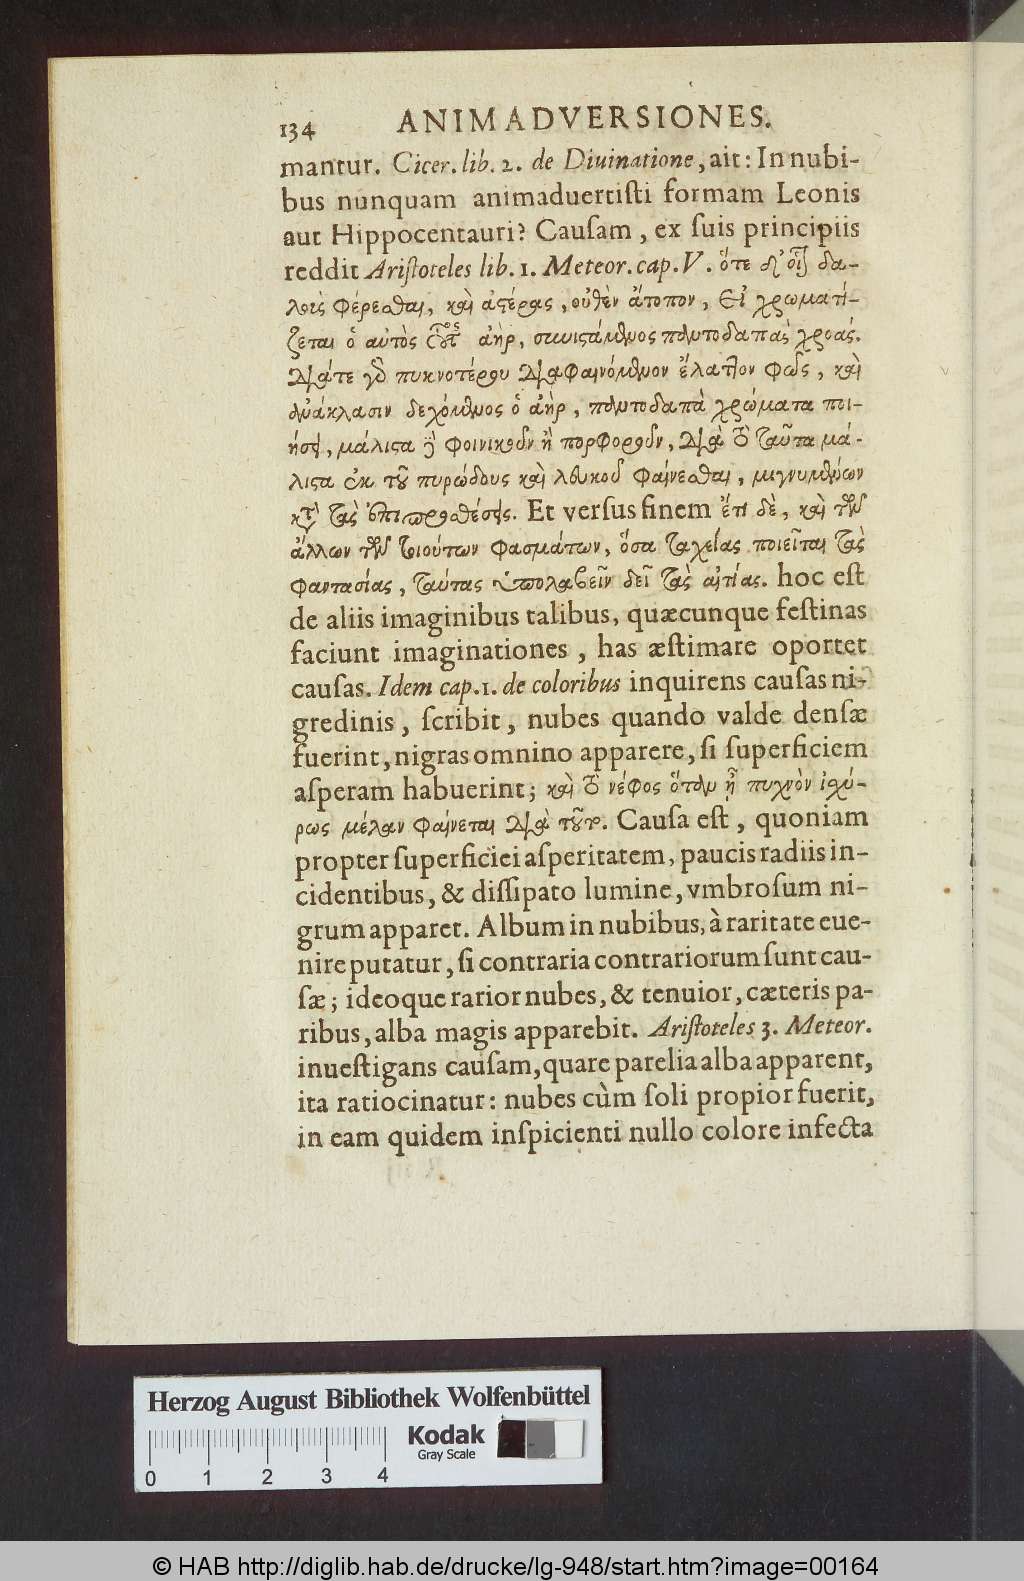 134 ANIMADVERSIONES.
mantur. Cicer. lib. 2. de Diuinatione, ait: In nubi-
bus nunquam animaduertiſti formam Leonis
aut Hippocentauri? Cauſam, ex ſuis principiis
reddit Ariſtoteles lib. 1. Meteor. cap. V. ὅτε δα-
λοὶς φέρεσθαι, καὶ ἀστέρας, οὐθὲν ἄτοπον, εἰ χρωματί-
ζεται ὁ αὐτὸς οὗτος ἀὴρ, συνιστάμενος παντοδαπὰς χροάς.
διάτε γὸ πυκνοτέρου διαφαινόμενον ἔλαττον φῶς, καὶ
ἀνάκλασιν δεχόμενος ὁ ἀὴρ, παντοδαπὰ χρώματα ποι-
ήσει, μάλιστα ἢ φοινικοῦν ἢ πορφοροῦν, διὰ τὸ ταῦτα μά-
λιστα ἐκ τοῦ πυρώδους καὶ λευκοῦ φαίνεσθαι, μιγνυμένων
κτ τὰς ἐπιπροσθέσεις. Et verſus finem ἔτι δὲ, καὶ τῶν
ἄλλων τῶν τοιούτων φασμάτων, ὅσα ταχείας ποιεῖται τὰς
φαντασίας, ταύτας ὑπολαβεῖν δεῖ τὰς αἰτίας. hoc eſt
de aliis imaginibus talibus, quæcunque feſtinas
faciunt imaginationes, has æſtimare oportet
cauſas. Idem cap. 1. de coloribus inquirens cauſas ni-
gredinis, ſcribit, nubes quando valde denſæ
fuerint, nigras omnino apparere, ſi ſuperficiem
aſperam habuerint; καὶ τὸ νέφος ὅταν ᾖ πυχνὸν ἰσχύ-
ρως μέλαν φαίνεται διὰ τοῦτο. Cauſa eſt, quoniam
propter ſuperficiei aſperitatem, paucis radiis in-
cidentibus, & diſſipato lumine, vmbroſum ni-
grum apparet. Album in nubibus, à raritate eue-
nire putatur, ſi contraria contrariorum ſunt cau-
ſæ; ideoque rarior nubes, & tenuior, cæteris pa-
ribus, alba magis apparebit. Ariſtoteles 3. Meteor.
inueſtigans cauſam, quare parelia alba apparent,
ita ratiocinatur: nubes cùm ſoli propior fuerit,
in eam quidem inſpicienti nullo colore infecta
Herzog August Bibliothek Wolfenbüttel
Kodak
Gray Scale
0 1 2 3 4
© HAB http://diglib.hab.de/drucke/lg-948/start.htm?image=00164